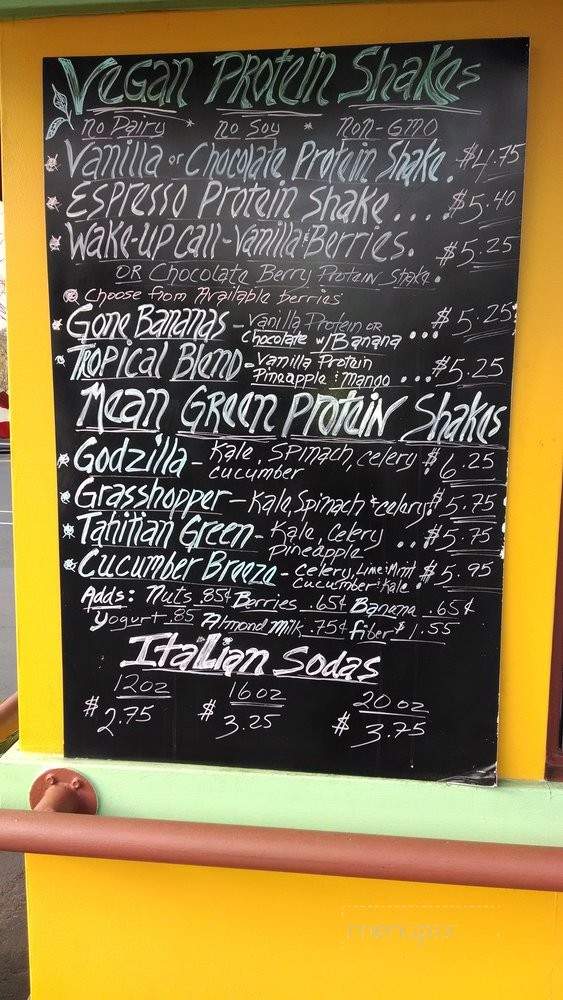 Vegan Protein Shakes
no Dairy * no Soy * non-GMO
* Vanilla or Chocolate Protein Shake. $4.75
* Espresso Protein Shake.... $5.40
* Wake-up Call - Vanilla & Berries. $5.25
OR Chocolate Berry Protein Shake.
* Choose from Available berries
* Gone Bananas - Vanilla Protein OR
Chocolate w/ Banana ... $5.25
* Tropical Blend - Vanilla Protein
Pineapple & mango ... $5.25
Mean Green Protein Shakes
* Godzilla - Kale, Spinach, celery $6.25
cucumber
* Grasshopper - Kale, Spinach & celery $5.75
* Tahitian Green - Kale, Celery
Pineapple .. $5.75
* Cucumber Breeze - celery, Lime & Mint
Cucumber & Kale. $5.95
Adds: Nuts .85¢ Berries .65¢ Banana .65¢
Yogurt .85 Almond Milk .75¢ fiber $1.55
Italian Sodas
12oz 16oz 20oz
$2.75 $3.25 $3.75
menupix